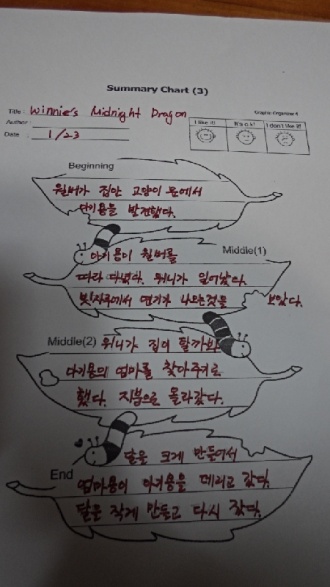 Summary Chart (3)
Title : Winnie's Midnight Dragon
Graphic Organizer 4
Author
Date 1/23
I like it!
It's o.k!
I don't like it!
Beginning
윌버가 집안 고양이 문에서
아기용을 발견했다.
아기용이 윌버를
Middle(1)
따라 다녔다. 위니가 일어났다.
빗자루에서 연기가 나오는것을 보았다.
Middle(2) 위니가 집이 탈까봐
아기용의 엄마를 찾아주기로
했다. 지붕으로 올라갔다.
달을 크게 만들어서
End
엄마용이 아기용을 데리고 갔다.
달을 작게 만들고 다시 잤다.